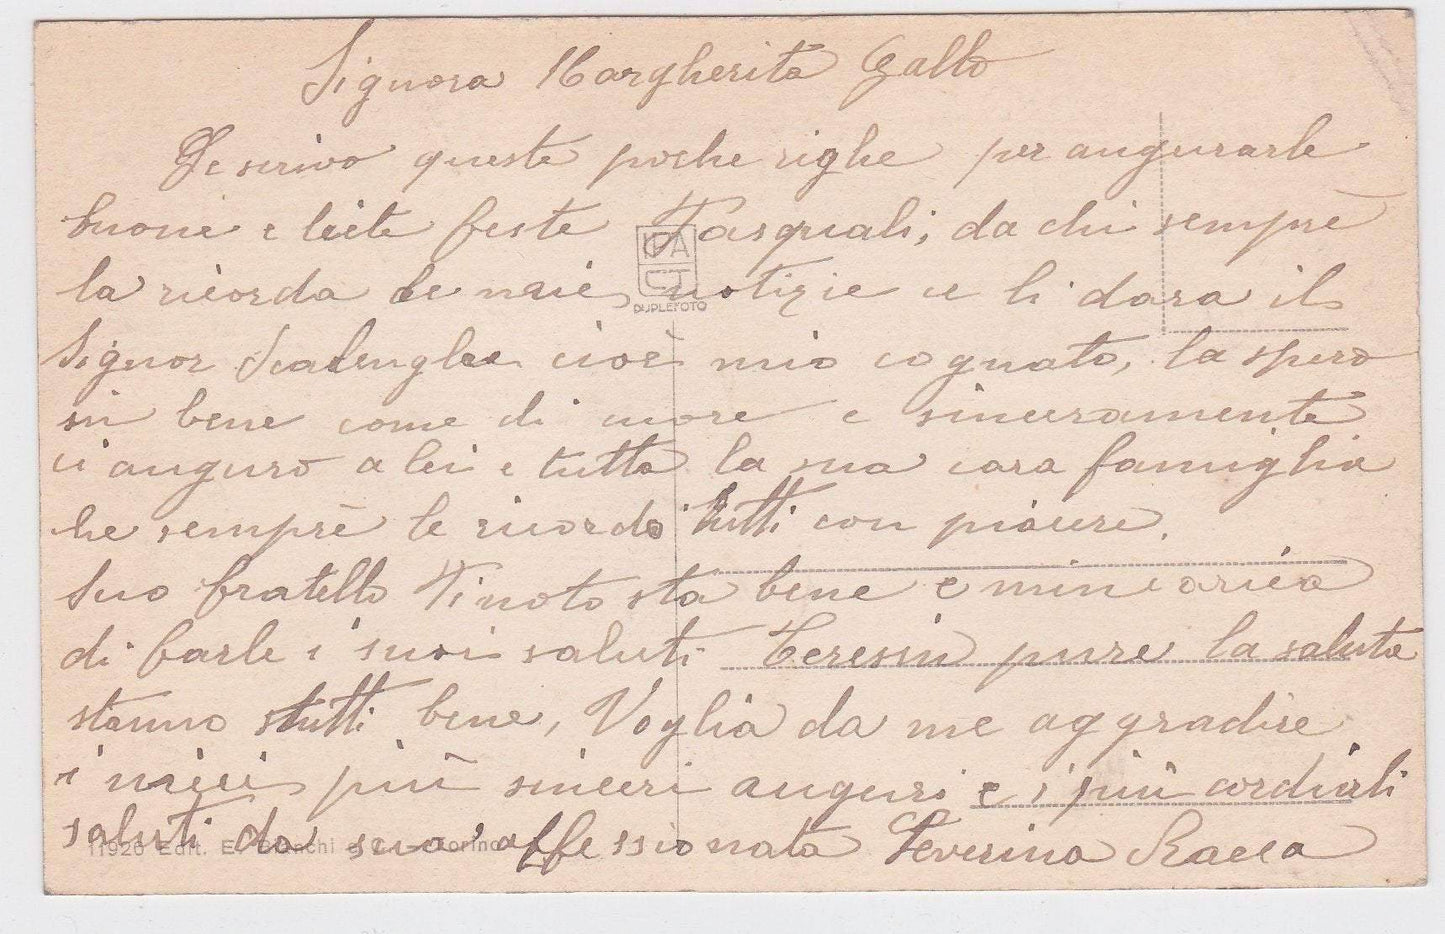 Signora Margherita Gallo
Le scrivo queste poche righe per augurarle
buone e liete feste Pasquali; da chi sempre
la ricorda le mie notizie ce li dara il
Signor Scalenghe cioè mio cognato, la spero
in bene come di cuore e sinceramente
ci auguro a lei e tutta la sua cara famiglia
che sempre le ricordo tutti con piacere.
Suo fratello Tinoto sta bene e mincarica
di farle i suoi saluti Teresin pure la saluta
stanno tutti bene, Voglia da me aggradire
i miei più sinceri auguri e i più cordiali
saluti da sua affessionata Severina Racca
IPA
CT
DUPLEFOTO
11920 Edit. E. Bianchi e C. - Torino